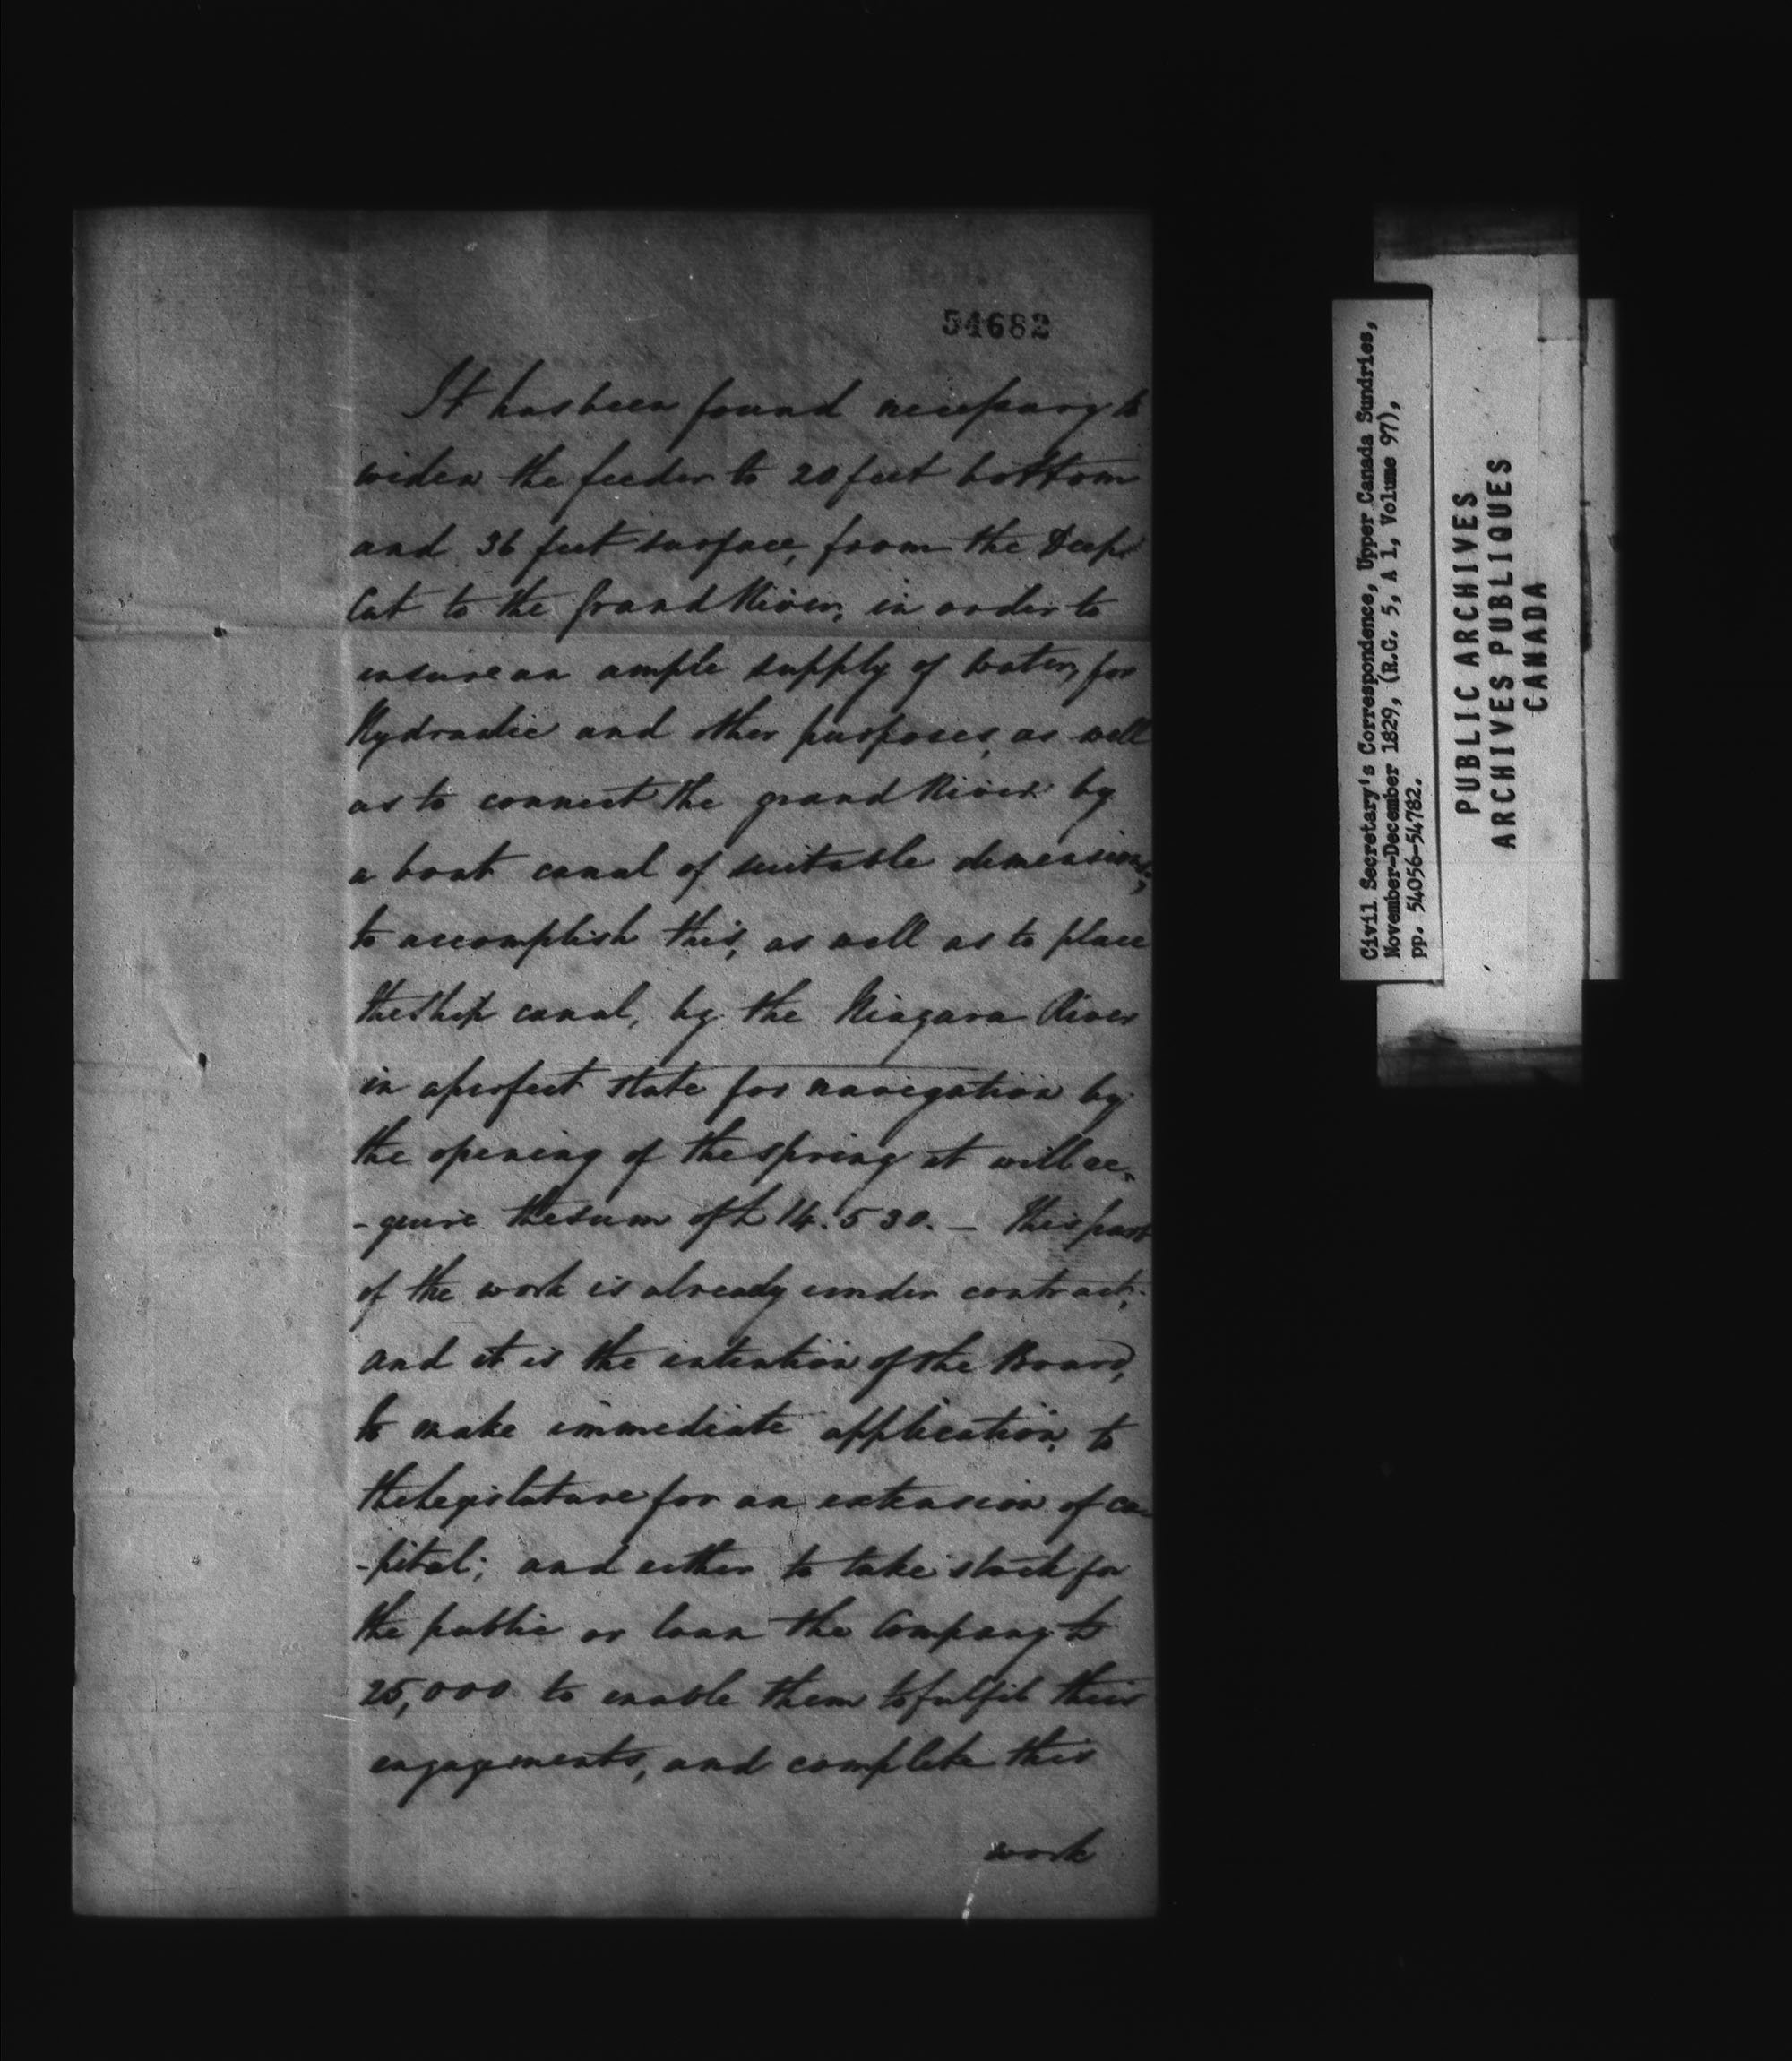 54682
It has been found necessary to
widen the feeder to 20 feet bottom
and 36 feet surface, from the Deep
Cut to the Grand River, in order to
insure an ample supply of water, for
Hydraulic and other purposes, as well
as to connect the grand River by
a boat canal of suitable dimensions;
to accomplish this, as well as to place
the ship canal, by the Niagara River
in a perfect state for navigation by
the opening of the spring it will re-
-quire the sum of £14.530. — This part
of the work is already under contract;
and it is the intention of the Board,
to make immediate application, to
the Legislature for an extension of ca-
-pital; and either to take stock for
the public or loan the Company £
25,000 to enable them to fulfil their
engagements, and complete this
work
Civil Secretary's Correspondence, Upper Canada Sundries,
November-December 1829, (R.G. 5, A 1, Volume 97),
pp. 54056-54782.
PUBLIC ARCHIVES
ARCHIVES PUBLIQUES
CANADA